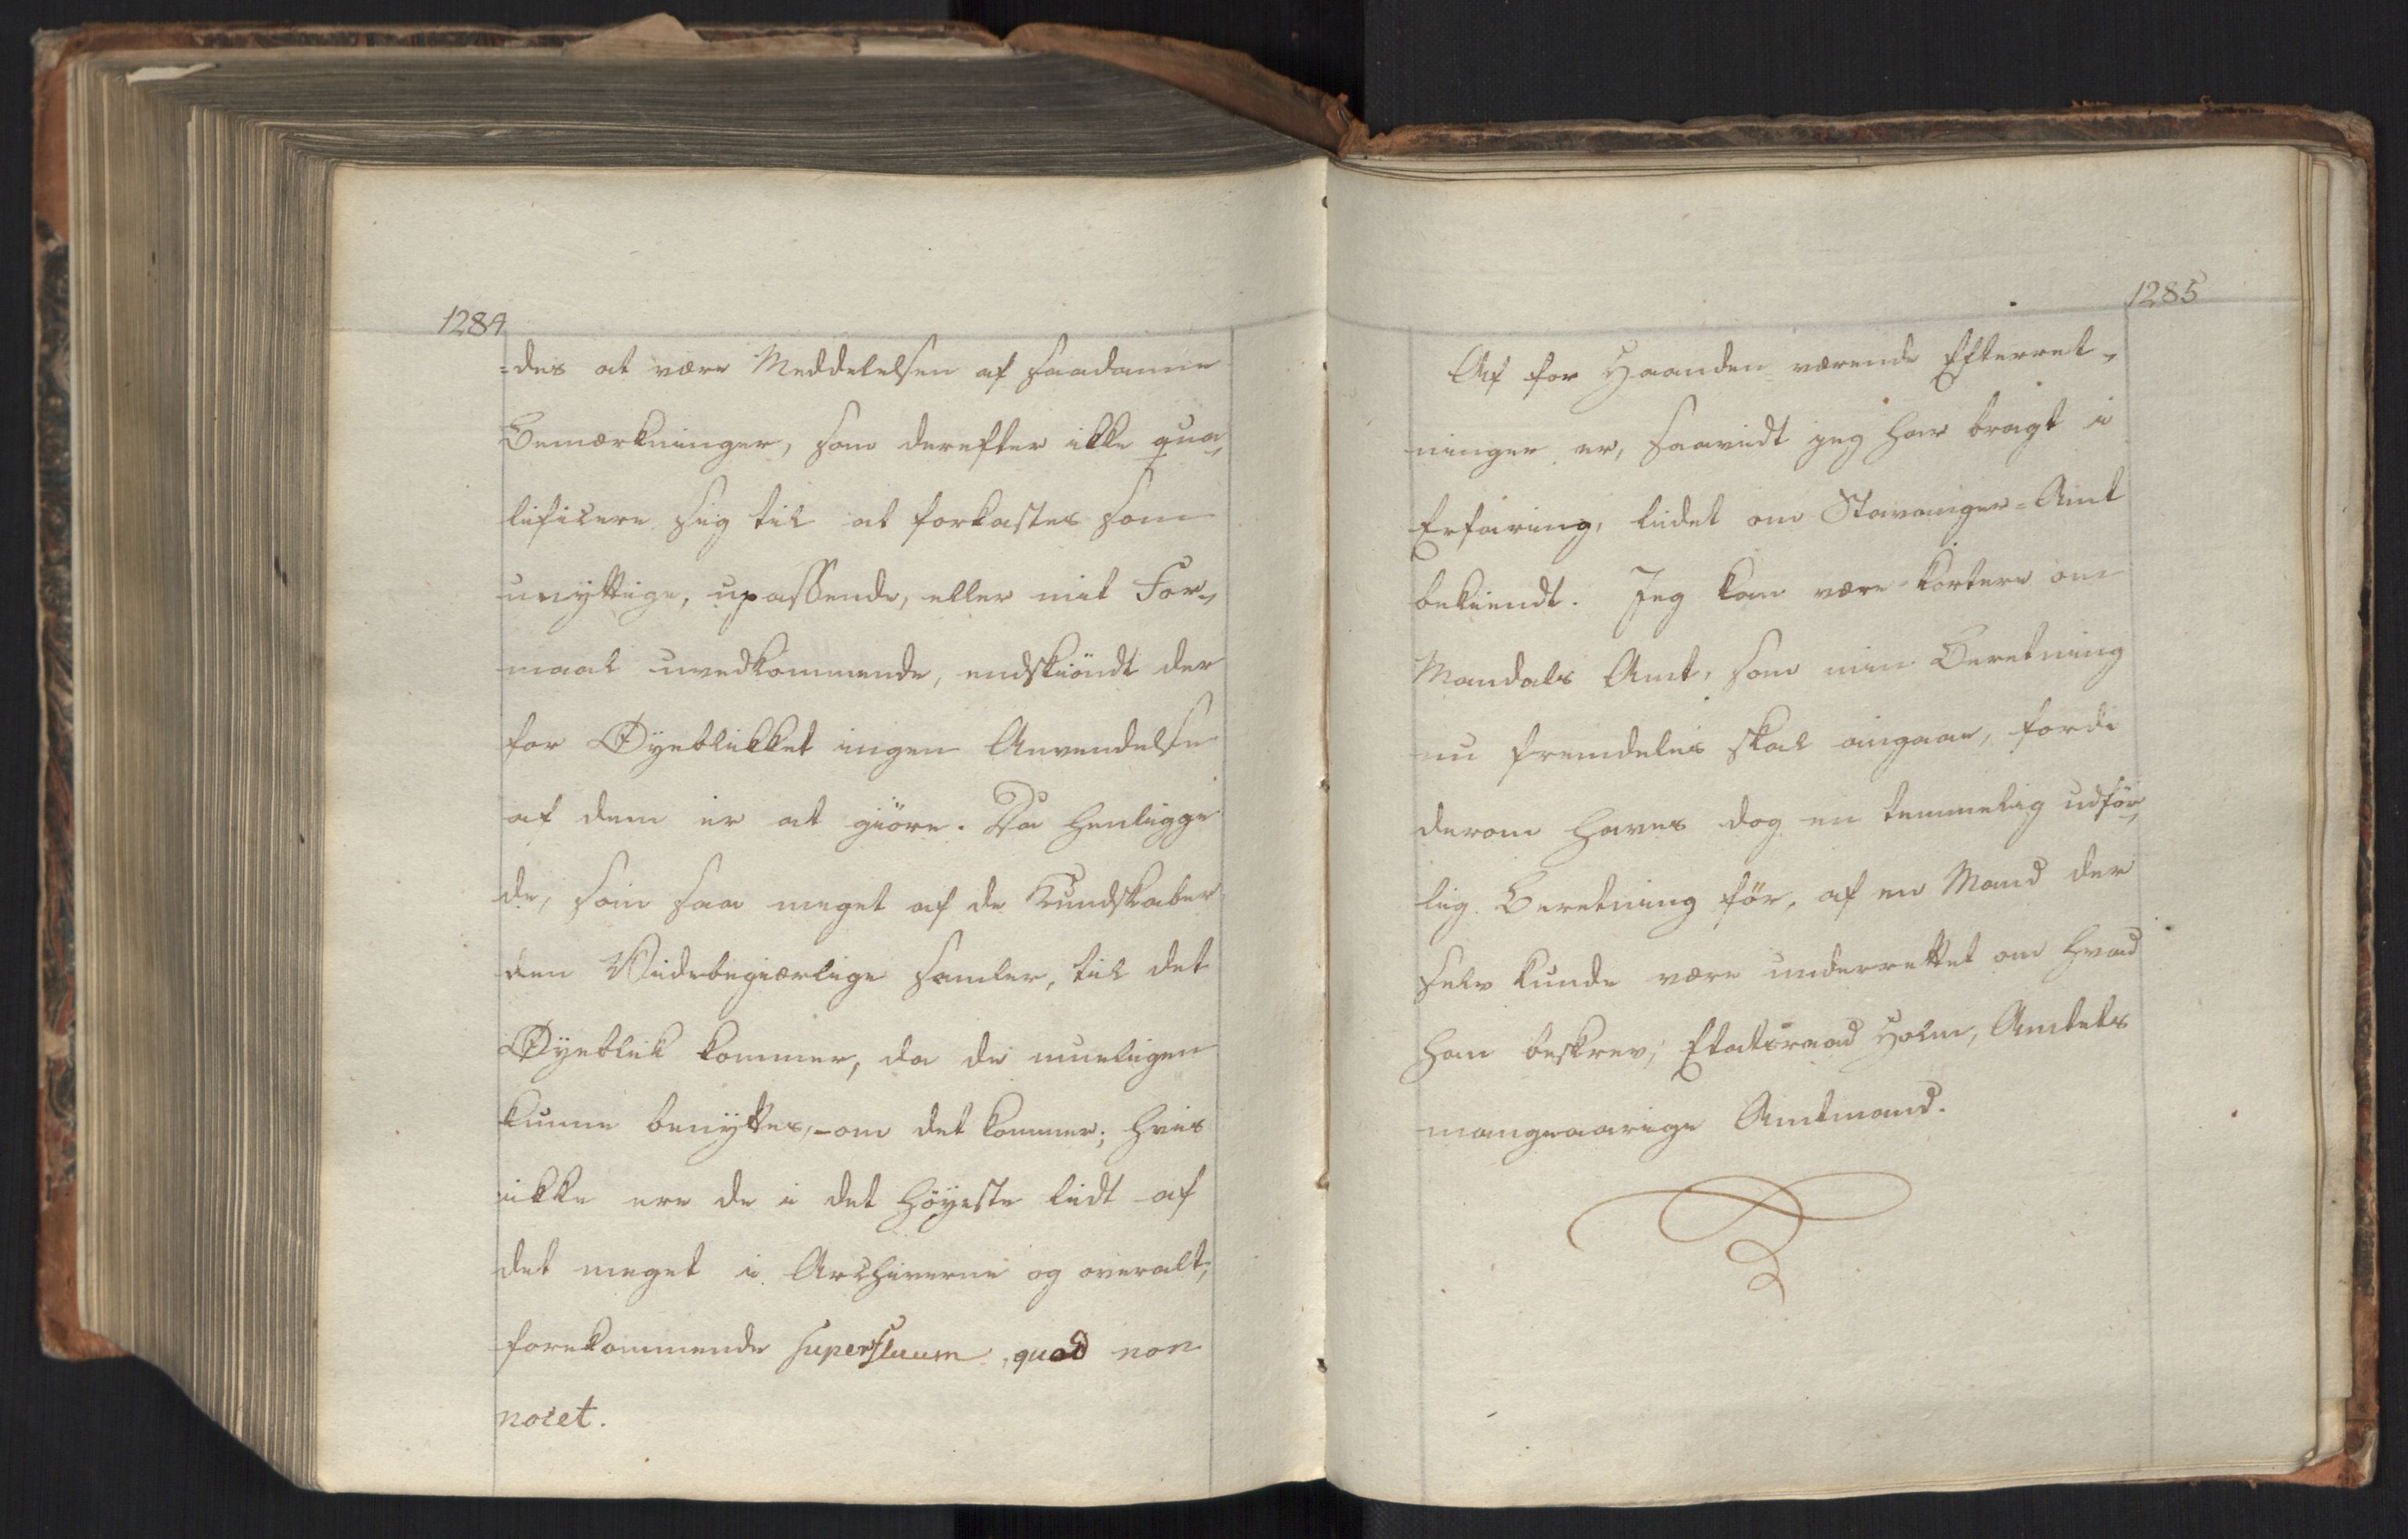 1284
=des at være Meddelelsen af saadanne
Bemærkninger, som derefter ikke qua„
lificere sig til at forkastes som
unyttige, upassende, eller mit For„
maal uvedkommende, endskiöndt der
for Øyeblikket ingen Anvendelse
af dem er at giöre. Da henligge
de, som saa meget af de Kundskaber
den Videbegiærlige samler, til det
Øyeblik kommer, da de mueligen
kunne benyttes, – om det kommer; hvis
ikke ere de i det höyeste lidt af
det meget i Archiverne og overalt,
forekommende superfluum, quod non
nocet.
1285
Af for Haanden værende Efterret„
ninger er, saavidt jeg har bragt i
Erfaring, lidet om Stavanger=Amt
bekiendt. Jeg kan være kortere om
Mandals Amt, som min Beretning
nu fremdeles skal angaae, fordi
derom haves dog en temmelig udför„
lig Beretning för, af en Mand der
selv kunde være underrettet om hvad
han beskrev, Etatsraad Holm, Amtets
mangeaarige Amtmand.